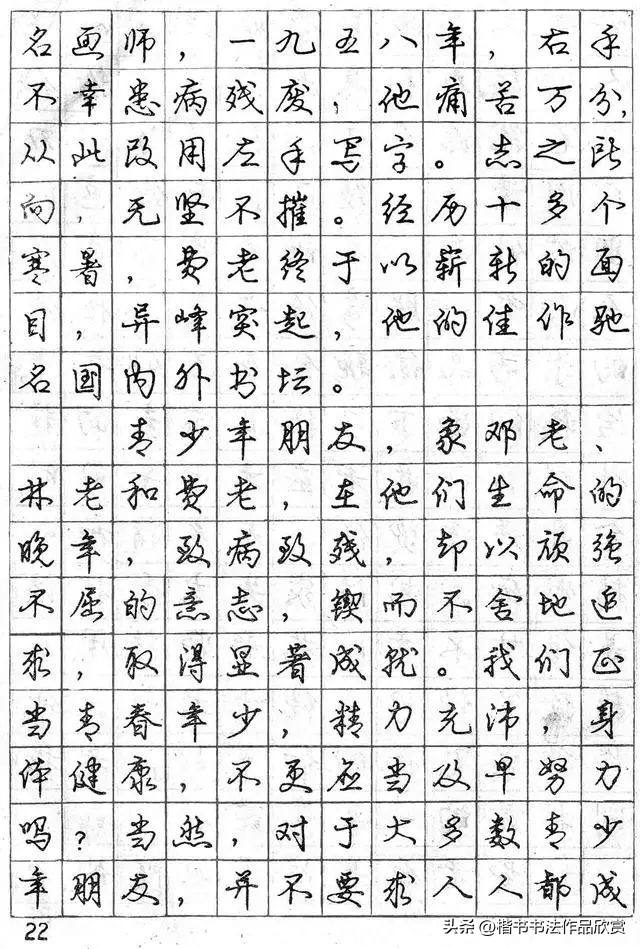 名画师，一九五八年，右手
不幸患病残废，他痛苦万分，
从此改用左手写字。志之所
向，无坚不摧。经历十多个
寒暑，费老终于以崭新的面
目，异峰突起，他的佳作驰
名国内外书坛。
青少年朋友，象邓老、
林老和费老，在他们生命的
晚年，致病致残，却以顽强
不屈的意志，锲而不舍地追
求，取得显著成就。我们正
当青春年少，精力充沛，身
体健康，不更应当及早努力
吗？当然，对于大多数青少
年朋友，并不要求人人都成
22
头条@楷书书法作品欣赏